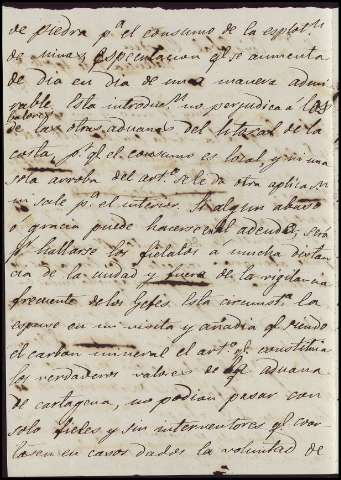 de piedra p.ª el consumo de la esplot.n
de minas, especulacion q.e se aumenta
de dia en dia de una manera admi
rable. Esta introduc.n no perjudica a los
valores
de las otras aduanas del litoral de la
costa, p.r q.e el consumo es local, y ni una
sola arroba del art.o se le da otra aplicac.n
ni sale p.ª el interior. Si algun abuso
o gracia puede hacerse en el adeudo, será
p.r hallarse los fielatos á mucha distan
cia de la ciudad y fuera de la vigilancia
frecuente de los Gefes. Esta circunst.ª la
espuse en mi visita y añadia q.e siendo
el carbon mineral el art.o q.e constituia
los verdaderos valores de la aduana
de Cartagena, no podian pasar con
solo fieles y sin interventores q.e
en casos dados la voluntad de